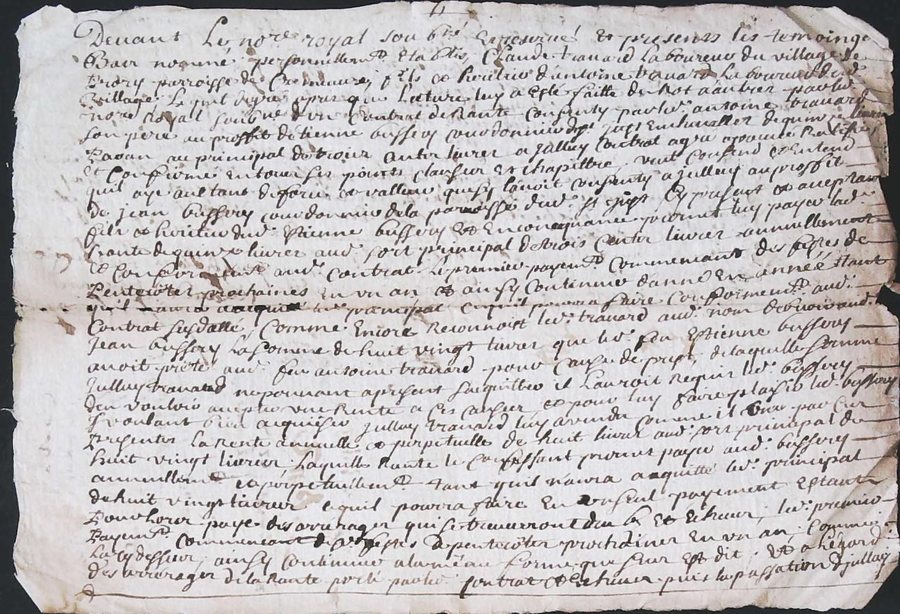 Devant Le nore royal soubné Et presents les temoings
bas nommé personnellemt Estably Claude travard Laboureur du village de
parroisse de fils et heritier d'antoine travard Laboureur dud
village Lequel degré apres que Lecture luy a esté faitte de mot a autre par le
nore Royall soubné d'un Contrat de Rante Consenty par led antoine travard
son pere au proffit d'etienne bussery Courdonnier de
au principal de trois Cents livres a Jceluy Contrat
Et Confirmé En tous ses points Clauses et Chapittre, veut Consent Et Entend
quil aye aultant de force et valleur quesy Lavoit Consenty a Jceluy au proffit
de Jean bussery Courdonnier de la parroisse dud st Ey present et acceptant
fils et heritier dud Estienne bussery Et En Consequance promet luy payer lad
Rante de quinze livres aud sort principal de trois Cents livres annuellement
Et Conformement aud Contrat Le premier payemt Commencant des festes de
pentecotes prochaines En un an et ainsy Continuer d'année En année tant
quil naura aquitté led principal Ce quil pourra faire Conformemt aud
Contrat susdatté, Comme Encore Reconnoist led travard aud nom debvoir aud
Jean bussery La somme de huit vingt livres que led feu Estienne bussery
avoit presté aud feu antoine travard pour Cause de prest, de laquelle somme
Jceluy travard ne pouvant apresent Saquitter il Lauroit Requis led bussery
den vouloir une Rante a Ces Causes, et pour luy faire plaisir led bussery
voulant bien acquiesser Jceluy travard luy a vendu Comme il vend par Ces
presentes La rente annuelle et perpetuelle de huit livres aud sort principal de
huit vingt livres, Laquelle Rante le Confessant promet payer aud bussery
annuellemt et perpetuellemt tant quil naura aquitté led principal
de huit vingt livres Ce quil pourra faire En un seul payement Estant
pour lors payé des arrerages qui se trouveront dus Et Echeus, led premier
payemt Commencant des festes de pentecotes prochaines En un an, Comme
La Cy dessus, ainsy Continuer a la meme forme que sus Est dit, Et a L'egard
des arrerages de la Rante porté par led Contrat Echeus puis la passation d'Jceluy